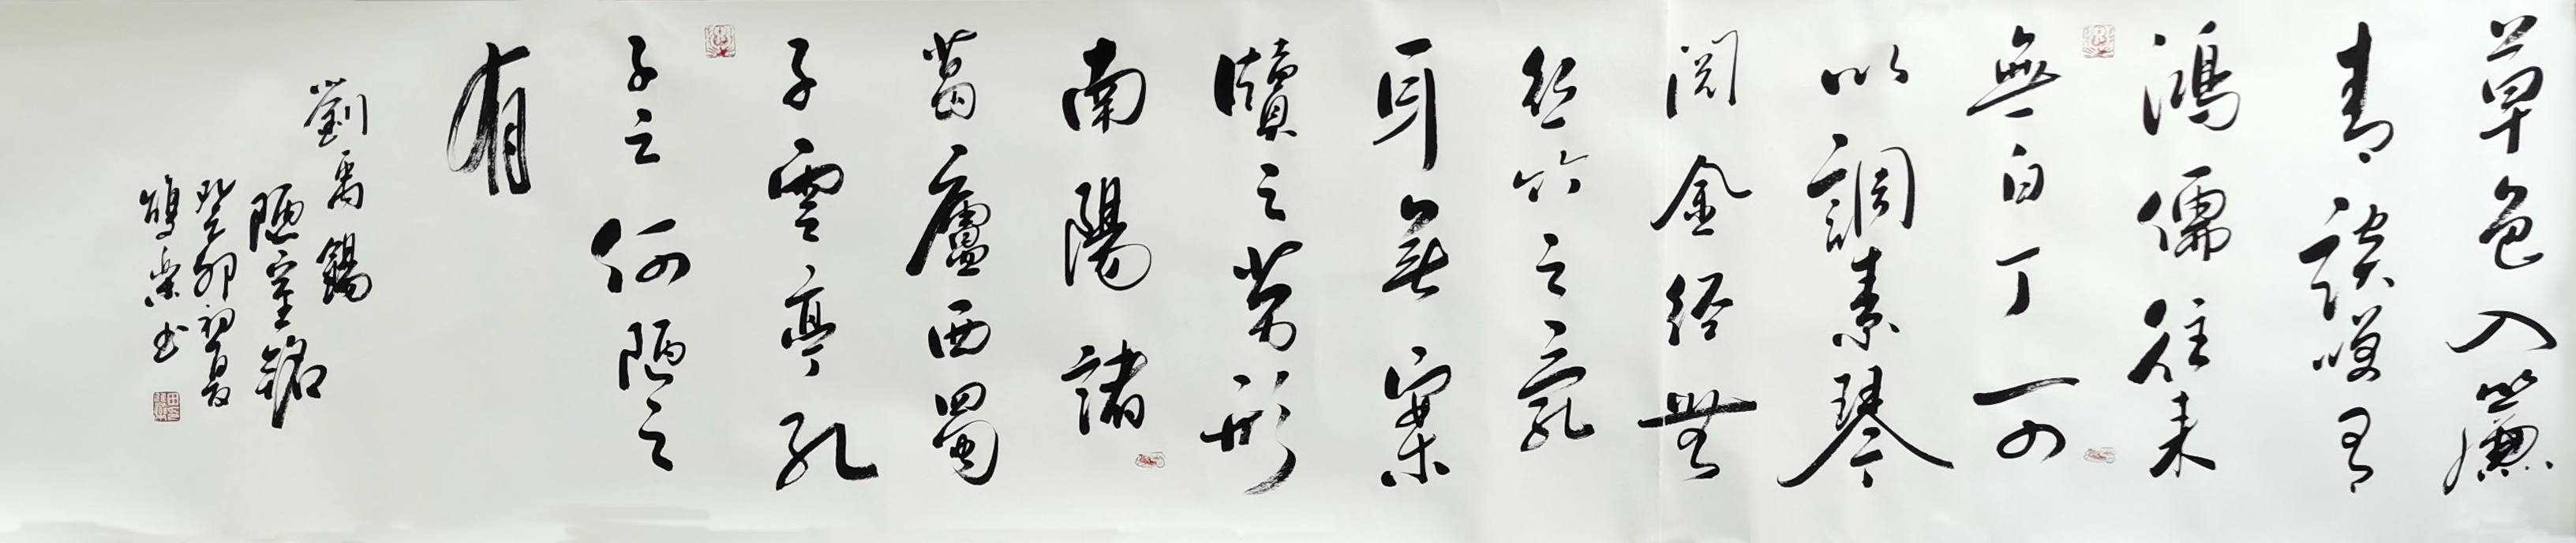 草色入簾
青談咲有
鴻儒往来
無白丁可
以調素琴
閱金經無
丝竹之亂
耳無案
牘之勞形
南陽諸
葛廬西蜀
子雲亭孔
子云何陋之
有
劉禹錫
陋室銘
癸卯初夏
书